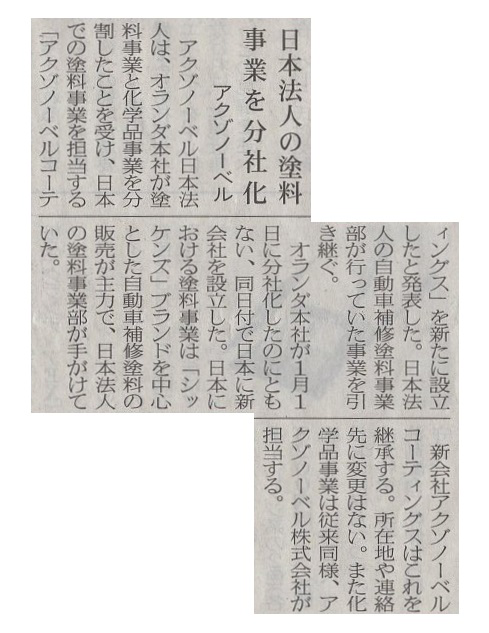 日本法人の塗料
事業を分社化
アクゾノーベル
アクゾノーベル日本法
人は、オランダ本社が塗
料事業と化学品事業を分
割したことを受け、日本
での塗料事業を担当する
「アクゾノーベルコーテ
ィングス」を新たに設立
したと発表した。日本法
人の自動車補修塗料事業
部が行っていた事業を引
き継ぐ。
オランダ本社が1月1
日に分社化したのにとも
ない、同日付で日本に新
会社を設立した。日本に
おける塗料事業は「シッ
ケンズ」ブランドを中心
とした自動車補修塗料の
販売が主力で、日本法人
の塗料事業部が手がけて
いた。
新会社アクゾノーベル
コーティングスはこれを
継承する。所在地や連絡
先に変更はない。また化
学品事業は従来同様、ア
クゾノーベル株式会社が
担当する。